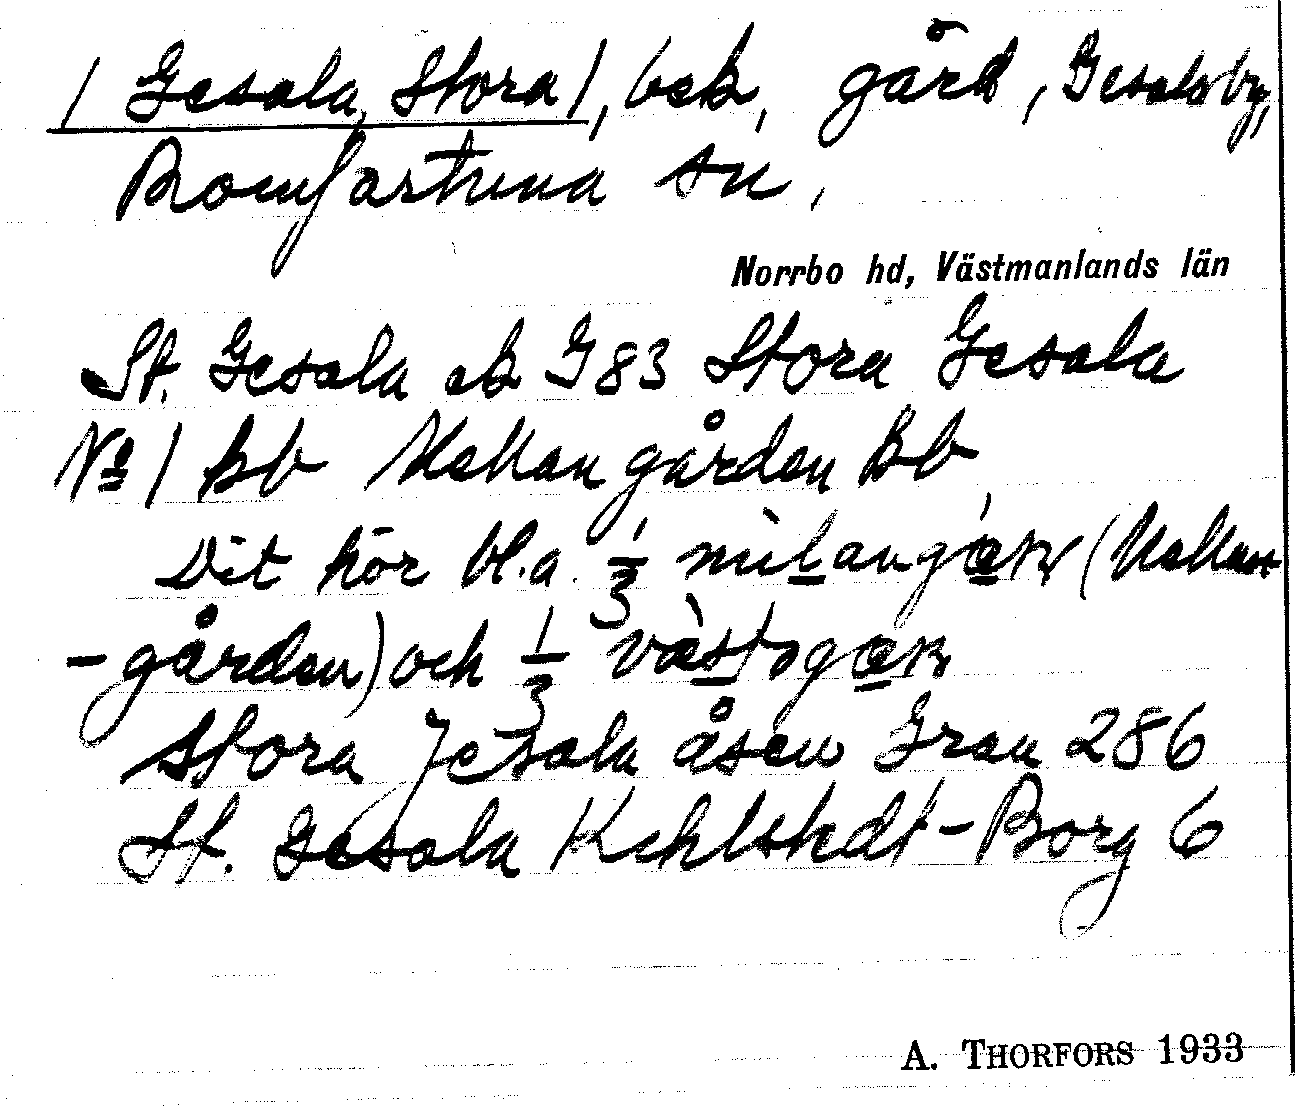 / Gesala, Stora /, bek, gård, Gesala by,
Romfartuna sn,
Norrbo hd, Västmanlands län
St. Gesala ek G 83 Stora Gesala
No 1 bb Mellangården Bb
Dit hör bl.a. 1/3 milangaṛ (Mellan
-gården) och 1/3 västsgaṛ
Stora Jesala åsen Gran 286
St. Gesala Kehlstedt-Borg 6
A. THORFORS 1933